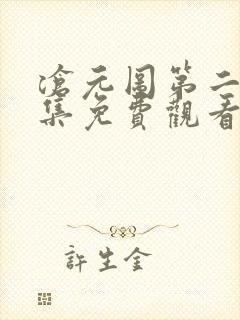 滄元圖第二
集免費觀看
許生金